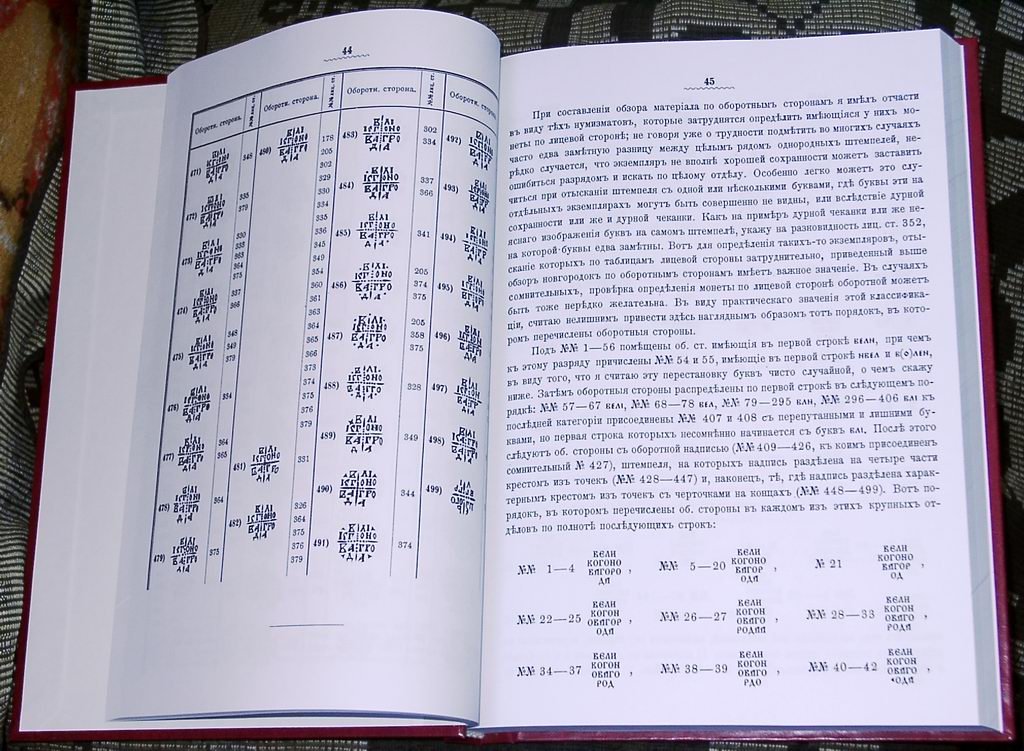 44
Оборотн. сторона.
№№ лиц. ст.
Оборотн. сторона.
№№ лиц. ст.
Оборотн. сторона.
№№ лиц. ст.
Оборотн.
471)
348
472)
335
379
473)
330
363
364
375
474)
337
366
475)
348
349
379
476)
334
477)
364
365
478)
364
479)
375
480)
178
205
302
329
330
334
335
336
345
349
354
360
361
363
364
365
366
373
374
375
376
379
481)
331
482)
326
364
375
376
379
483)
302
334
484)
337
366
485)
341
486)
205
374
375
487)
205
358
375
488)
328
489)
349
490)
344
491)
374
492)
493)
494)
495)
496)
497)
498)
499)
45
При составленіи обзора матеріала по оборотнымъ сторонамъ я имѣлъ отчасти
въ виду тѣхъ нумизматовъ, которые затруднятся опредѣлить имѣющіяся у нихъ мо-
неты по лицевой сторонѣ; не говоря уже о трудности подмѣтить во многихъ случаяхъ
часто едва замѣтную разницу между цѣлымъ рядомъ однородныхъ штемпелей, не-
рѣдко случается, что экземпляръ не вполнѣ хорошей сохранности можетъ заставить
ошибиться разрядомъ и искать по цѣлому отдѣлу. Особенно легко можетъ это слу-
читься при отысканіи штемпеля съ одной или нѣсколькими буквами, гдѣ буквы эти на
отдѣльныхъ экземплярахъ могутъ быть совершенно не видны, или вслѣдствіе дурной
сохранности или же и дурной чеканки. Какъ на примѣръ дурной чеканки или же не-
яснаго изображенія буквъ на самомъ штемпелѣ, укажу на разновидность лиц. ст. 352,
на которой буквы едва замѣтны. Вотъ для опредѣленія такихъ-то экземпляровъ, оты-
сканіе которыхъ по таблицамъ лицевой стороны затруднительно, приведенный выше
обзоръ новгородокъ по оборотнымъ сторонамъ имѣетъ важное значеніе. Въ случаяхъ
сомнительныхъ, провѣрка опредѣленія монеты по лицевой сторонѣ оборотной можетъ
быть тоже нерѣдко желательна. Въ виду практическаго значенія этой классифика-
ціи, считаю нелишнимъ привести здѣсь нагляднымъ образомъ тотъ порядокъ, въ кото-
ромъ перечислены оборотныя стороны.
Подъ №№ 1—56 помѣщены об. ст. имѣющія въ первой строкѣ ВЕЛИ, при чемъ
къ этому разряду причислены №№ 54 и 55, имѣющіе въ первой строкѣ и
въ виду того, что я считаю эту перестановку буквъ чисто случайной, о чемъ скажу
ниже. Затѣмъ оборотныя стороны распредѣлены по первой строкѣ въ слѣдующемъ по-
рядкѣ: №№ 57—67 №№ 68—78 №№ 79—295 №№ 296—406 къ
послѣдней категоріи присоединены №№ 407 и 408 съ перепутанными и лишними бу-
квами, но первая строка которыхъ несомнѣнно начинается съ буквъ Послѣ этого
слѣдуютъ об. стороны съ оборотной надписью (№№ 409—426, къ коимъ присоединенъ
сомнительный № 427), штемпеля, на которыхъ надпись раздѣлена на четыре части
крестомъ изъ точекъ (№№ 428—447) и, наконецъ, тѣ, гдѣ надпись раздѣлена харак-
тернымъ крестомъ изъ точекъ съ черточками на концахъ (№№ 448—499). Вотъ по-
рядокъ, въ которомъ перечислены об. стороны въ каждомъ изъ этихъ крупныхъ от-
дѣловъ по полнотѣ послѣдующихъ строкъ:
№№ 1—4 ВЕЛИ КОГОНО ВАГОРО ДА ,
№№ 5—20 ВЕЛИ КОГОНО ВАГОР ОДА ,
№ 21 ВЕЛИ КОГОНО ВАГОР ОД ,
№№ 22—25 ВЕЛИ КОГОН ОВАГОР ОДА ,
№№ 26—27 ВЕЛИ КОГОН ОВАГО РОДА ,
№№ 28—33 ВЕЛИ КОГОН ОВАГО РОДА ,
№№ 34—37 ВЕЛИ КОГОН ОВАГО РОД ,
№№ 38—39 ВЕЛИ КОГОН ОВАГО РДО ,
№№ 40—42 ВЕЛИ КОГОН ОВАГО •ОДА ,